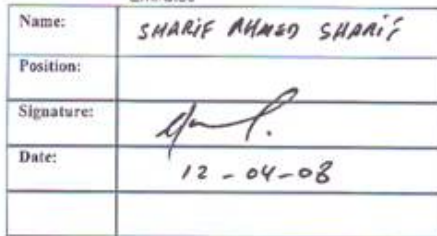 Name: SHARIF AHMED SHARIF
Position:
Signature:
Date: 12-04-08